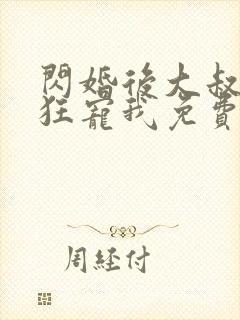 閃婚後大叔
狂寵我免費
周經付